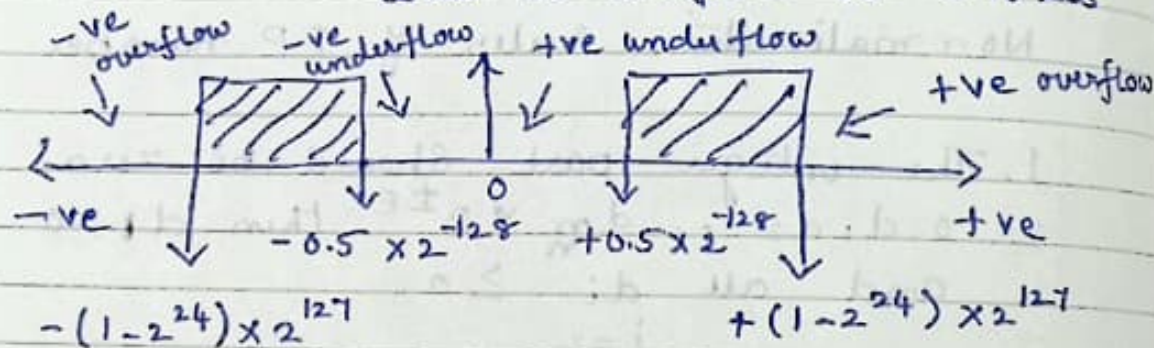 -ve overflow
-ve underflow
+ve underflow
+ve overflow
0
-ve
-0.5 × 2^-128
+0.5 × 2^-128
+ve
-(1-2^24) × 2^127
+(1-2^24) × 2^127